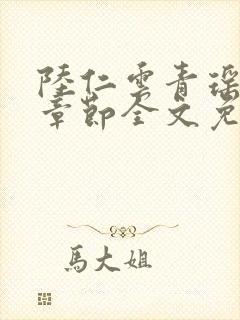 陸仁雲青瑶
章節全文免
馬大姐